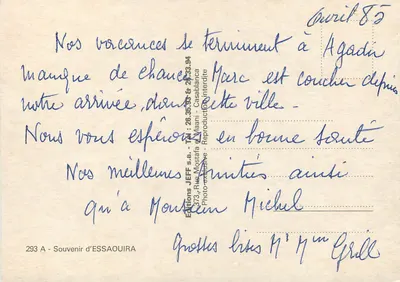 avril 85
Nos vacances se terminent à Agadir
manque de chance Marc est coucher depuis
notre arrivée dans cette ville -
Nous vous espérons en bonne santé
Nos meilleures Amitiés ainsi
Qu'à Monsieur Michel
Grosses bises Mr Mme Grill
Editions JEFF s.a. - Tél : 26.36.93 & 26.33.94
373, Rue Mostafa El Maani - Casablanca
Photo-exclusive - Reproduction interdite
293 A - Souvenir d'ESSAOUIRA